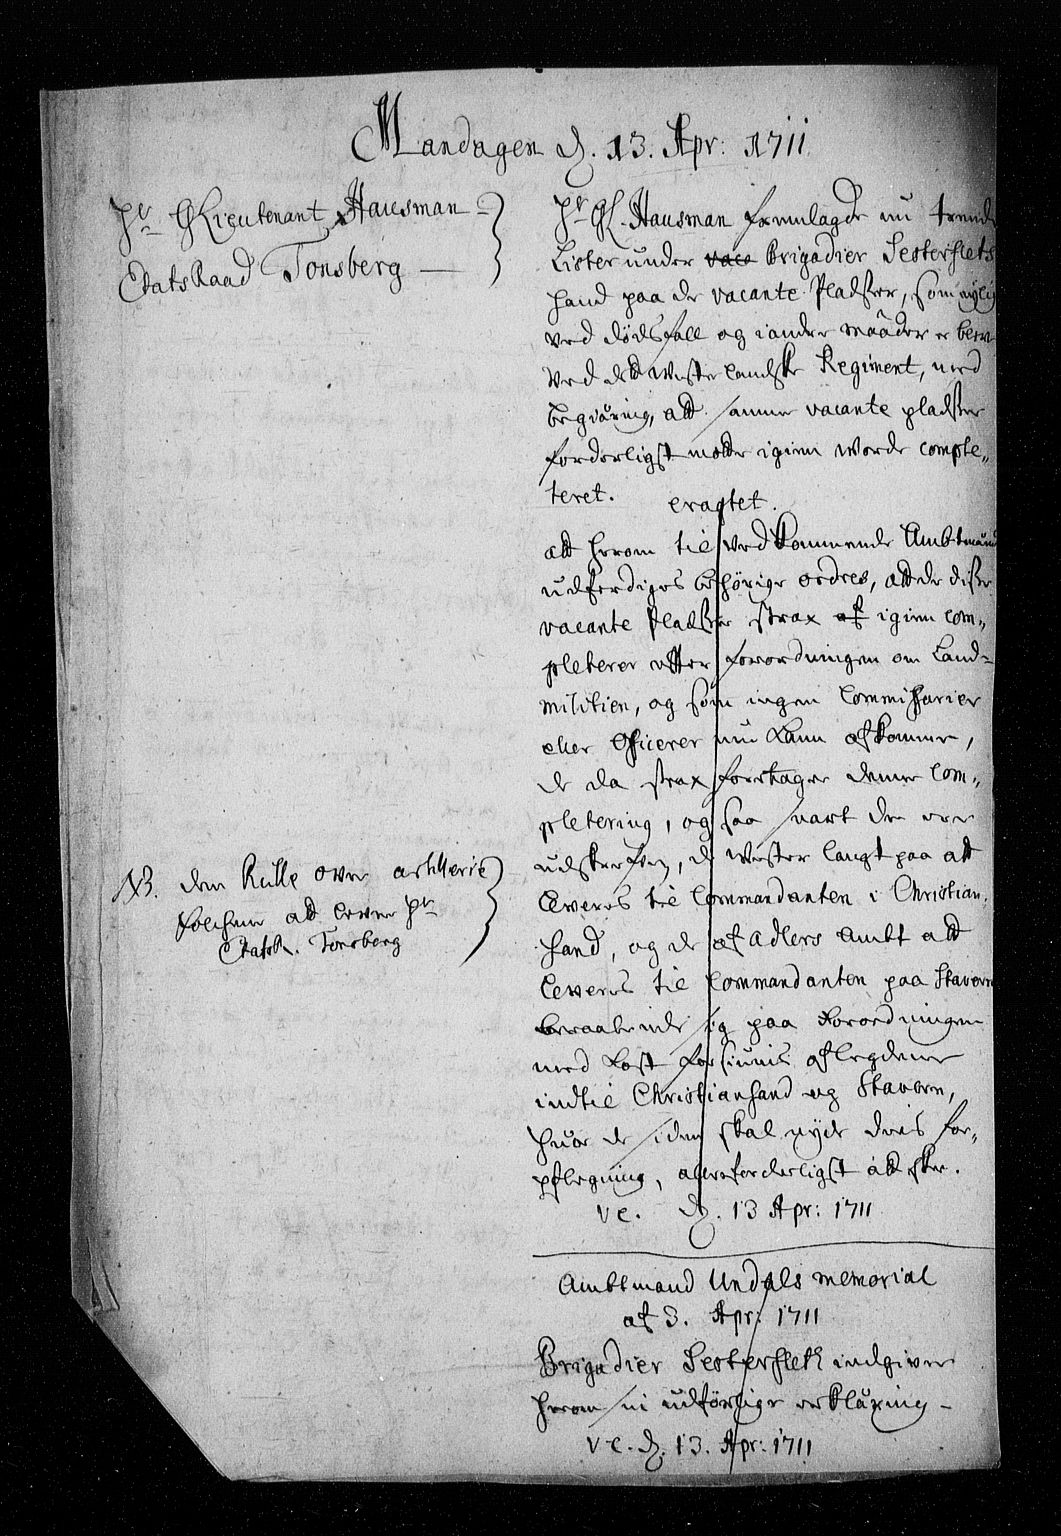 Mandagen d. 13. Apr: 1711
Hr GLieutenant Hausman
EtatsRaad Tonsberg
Hr GL. Hausman fremlagde nu trende
Lister under vaca Brigadier Sesterflets
hand paa de vacante Pladser, som nylig
ved dødsfall og i andre maader er blev
ved det Westerlandske Regiment, med
begiæring, att samme vacante pladser
forderligst motte igien worde comple„
teret.
eragtet.
att herom til vedkommende Ambtmænd
udferdiges behörige ordres, att de disse
vacante Pladser strax af igien com„
pleterer efter forordningen om Land=
militien, og som ingen Commissarier
eller Officerer nu kann afkomme,
de da strax foretager denne Com„
pletering, og saa snart de ere
udskrefven, de Wester langt paa att
leveres til Commandanten i Christian„
sand, og de af Adlers Ambt att
leveres til Commandanten paa Stavern
beraabende sig paa Forordningen
med Kost forsiunis aflegdene
indtil Christiansand og Stavern,
huor de siden skal nyde deris for„
pflegning, allerforderligst att skee.
vc. d. 13 Apr: 1711
NB. den Rulle over artillerie
folchene att levere Hr
Etatsr. Tonsberg
Ambtmand Undals memorial
af 3. Apr: 1711
Brigadier Sesterfleth indgiver
herom sin udförlige erklæring -
vc. d. 13. Apr: 1711